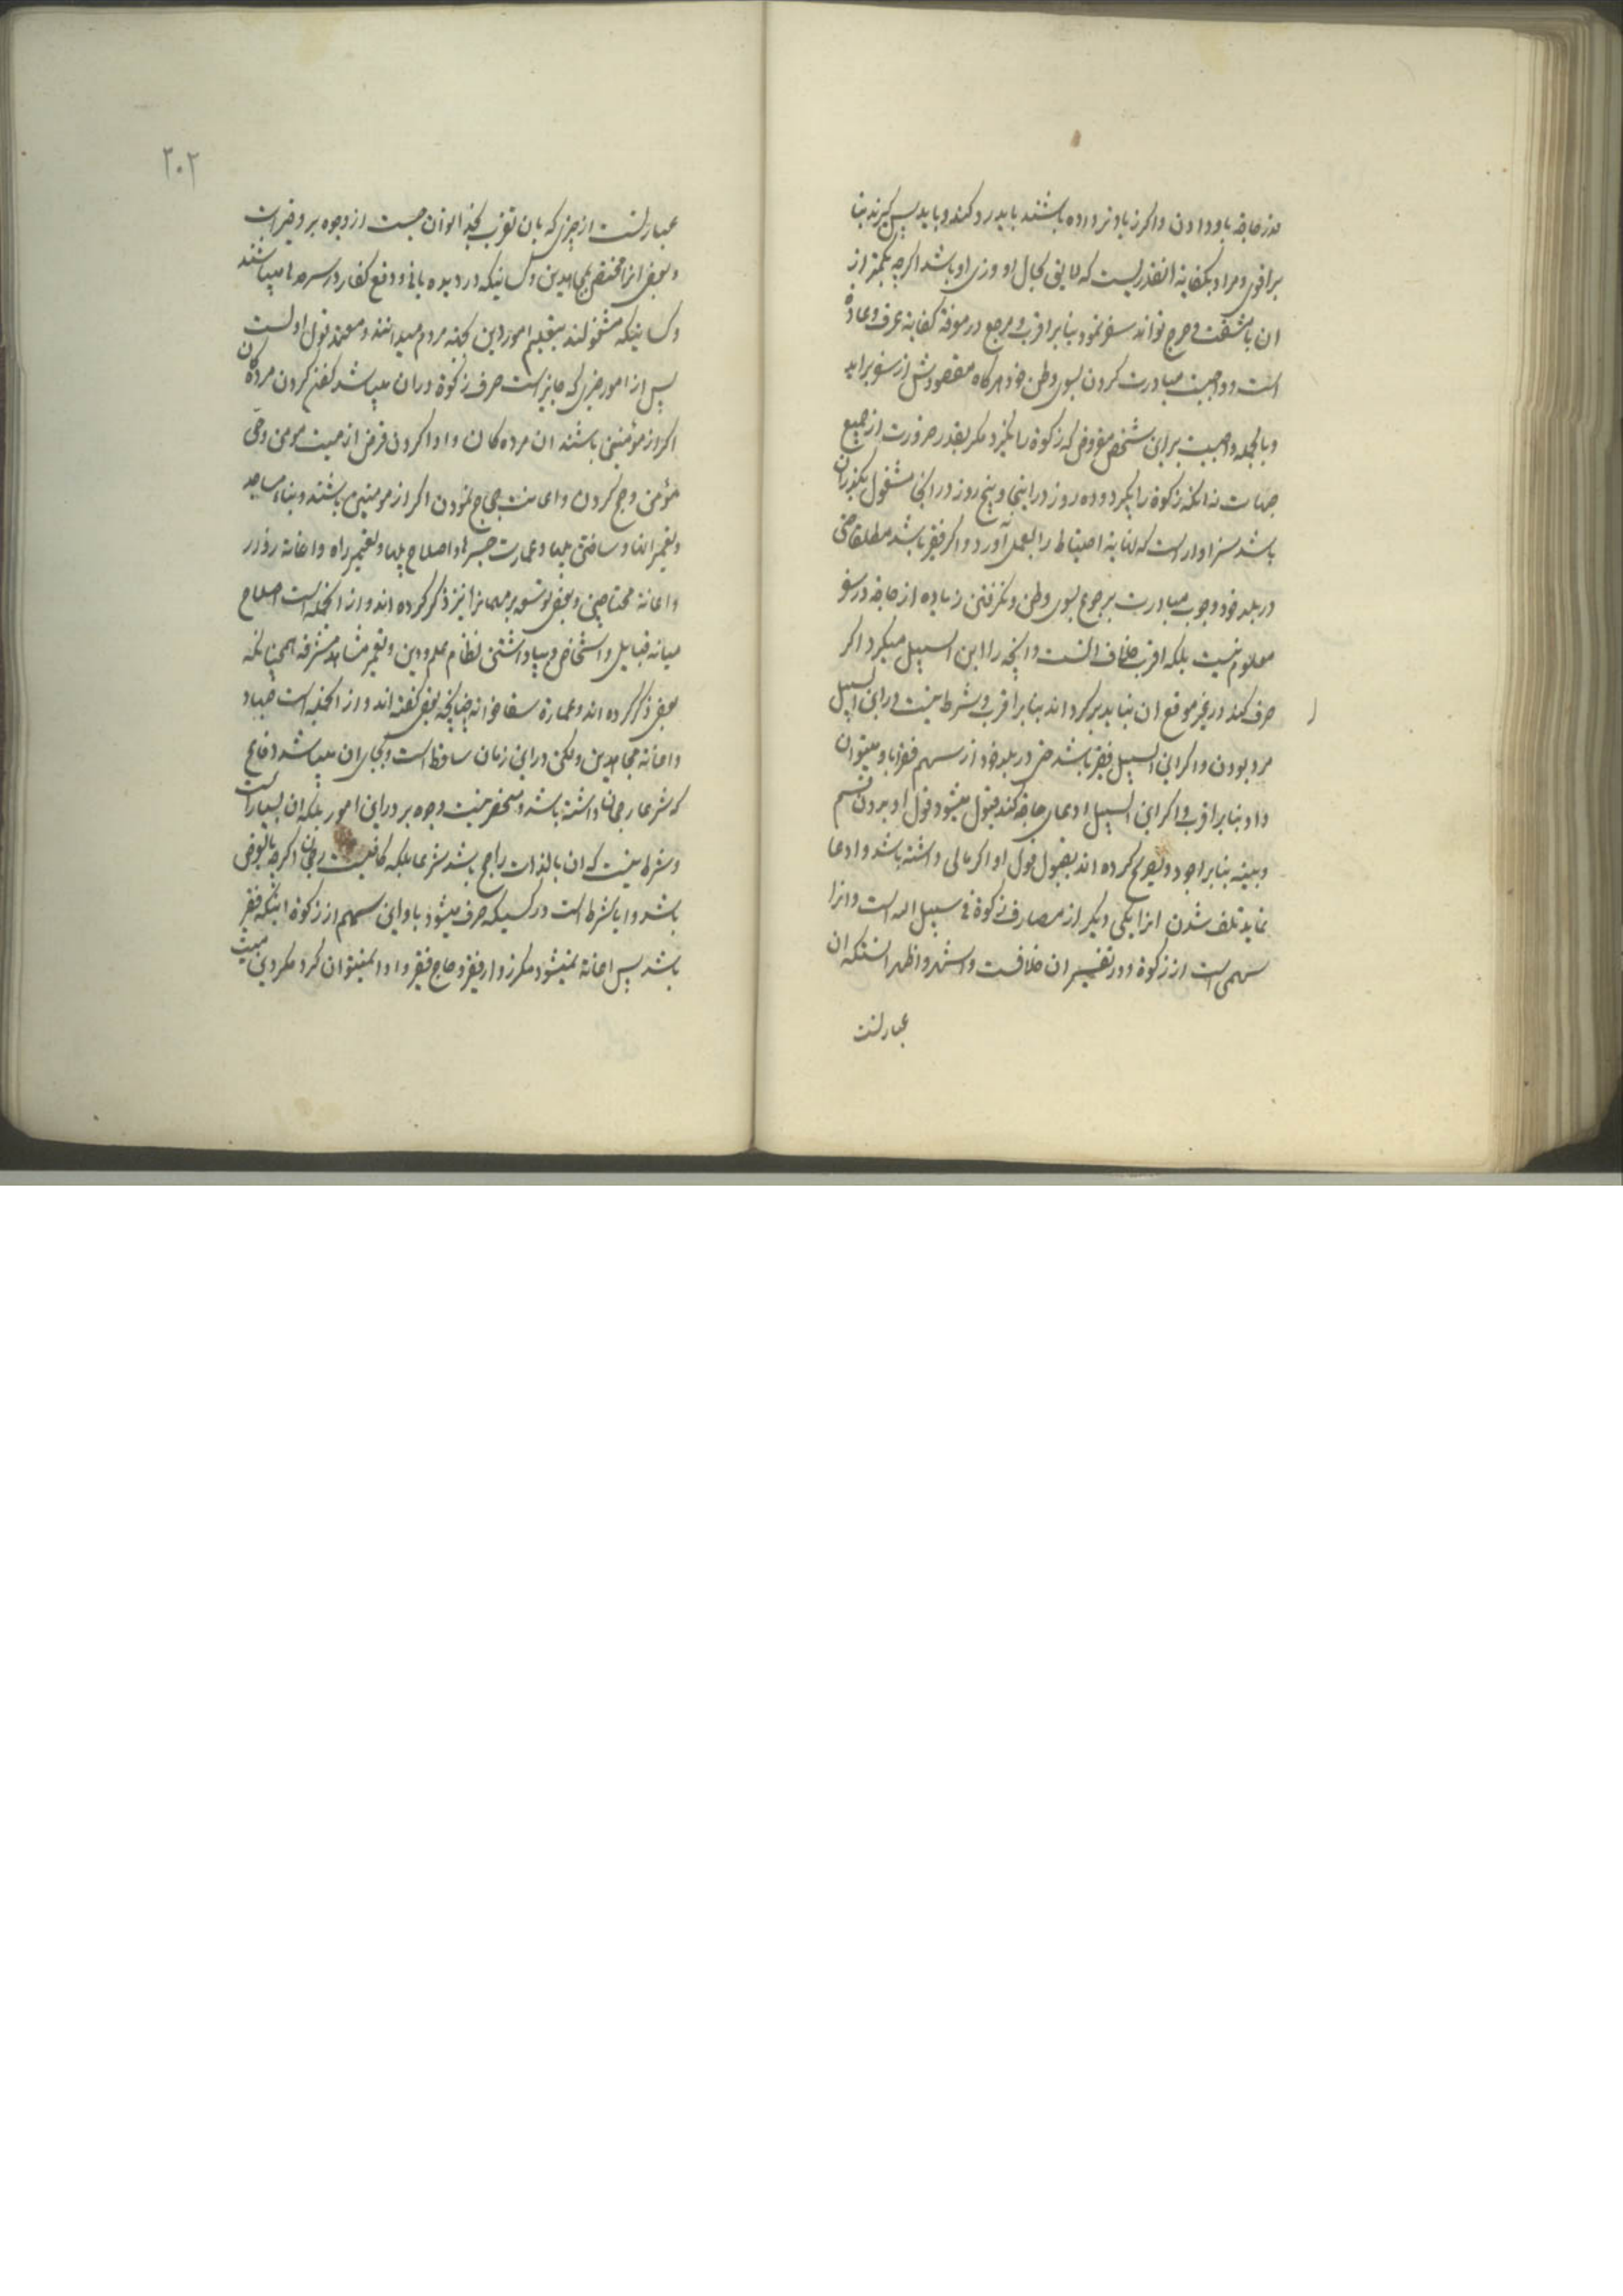 قدر حاجة باو دادن و اکر زیادتر داده باشند باید رد کند و باید پس کیرند بنا
بر اقوی و مراد بکفایة انقدریست که لایق بحال او وزی او باشد اکرچه بکمتر از
ان با مشقت و حرج تواند سفر نمود بنا بر اقرب و مرجع در معرفة کفایة عرف و عادة
است و واجبست مبادرت کردن بسوی وطن خود هرکاه مقصودش از سفر براید
و بالجمله واجبست بر این شخص مفروض که زکوة را نکیرد مکر بقدر ضرورت از جمیع
جهات نه انکه زکوة را بکیرد و ده روز در اینجا و پنج روز در انجا مشغول بکذران
باشد سزاوار است که نهایة احتیاط را بعمل آورد و اکر فقیر باشد مطلقا حتی
در بلد خود وجوب مبادرت برجوع بسوی وطن و نکرفتن زیاده از حاجة در سفر
معلوم نیست بلکه اقرب خلاف انست و انچه را ابن السبیل میکیرد اکر
صرف کند در غیر موقع ان نباید برکرداند بنا بر اقرب و شرط نیست در ابن السبیل
مرد بودن و اکر ابن السبیل فقیر باشد حتی در بلد خود از سهم فقرا باو میتوان
داد بنا بر اقرب و اکر ابن السبیل ادعای حاجة کند قبول میشود قول او بدون قسم
و بینه بنا بر اجود و تصریح کرده اند بقبول قول او اکر مالی داشته باشد و ادعا
نماید تلف شدن انرا یکی دیکر از مصارف زکوة فی سبیل الله است و انرا
سهمی است از زکوة و در تفسیر ان خلافست و اشهر و اظهر انستکه ان
عبارتست
۲۰۲
عبارتست از چیزی که بان تقرب بخدا توان جست از وجوه بر و خیرات
و بعضی انرا مختص بمجاهدین و کسانیکه در دیده بانی و دفع کفار در سرحدها میباشند
و کسانیکه مشغولند بتعلیم امور دین بجهة مردم میدانند و معتمد قول اولست
پس از امور خیری که جایز است صرف زکوة در ان میباشد کفن کردن مرده کان
اکر از مؤمنین باشند ان مرده کان و ادا کردن قرض از میت مومن و حی
مؤمن و حج کردن و اعانت حجاج نمودن اکر از مومنین باشند و بناء مساجد
و تعمیر انها و ساختن پلها و عمارت جسرها و اصلاح پلها و تعمیر راه و اعانة زوار
و اعانة محتاجین و بعضی توسعه بر مهمانرا نیز ذکر کرده اند و از انجمله است اصلاح
میانه قبایل و اشخاص و بپا داشتن نظام علم و دین و تعمیر مشاهد مشرفه همچنانکه
بعضی ذکر کرده اند و عمارة سقاخانه چنانچه بعضی کفته اند و از انجمله است جهاد
و اعانة مجاهدین ولکن در این زمان ساقط است و بجای ان میباشد دفاع
که شرعا رجحان داشته باشد و منحصر نیست وجوه بر در این امور بلکه ان بسیار است
و شرط نیست که ان بالذات راجح باشد شرعا بلکه کافیست رجحان اکرچه بالعرض
باشد و ایا شرط است در کسیکه صرف میشود باو این سهم از زکوة اینکه فقیر
باشد پس اعانة نمیشود مکر زوار فقیر و حاج فقیر و ادا نمیتوان کرد مکر دین میت